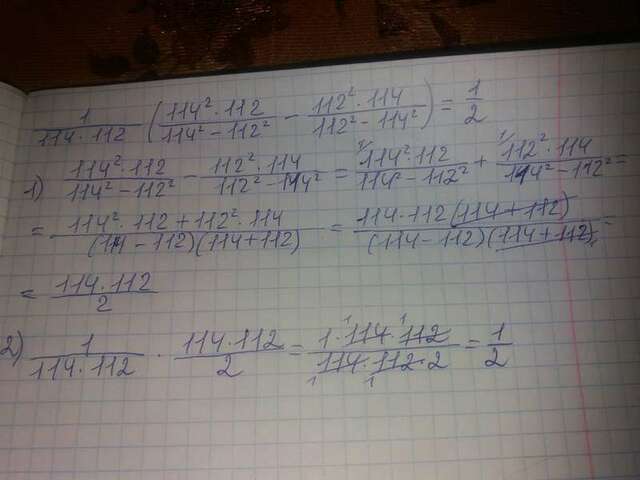 1/(114·112) (114²·112/(114²−112²) − 112²·114/(112²−114²)) = 1/2
1) 114²·112/(114²−112²) − 112²·114/(112²−114²) = 114²·112/(114²−112²) + 112²·114/(114²−112²) =
= (114²·112+112²·114)/((114−112)(114+112)) = 114·112(114+112)/((114−112)(114+112)) =
= 114·112/2
2) 1/(114·112) · 114·112/2 = 1·114·112/(114·112·2) = 1/2